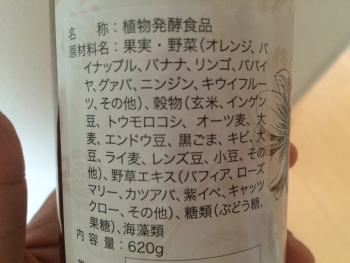 名　称：植物発酵食品
原材料名：果実・野菜(オレンジ、パ
イナップル、バナナ、リンゴ、パパイ
ヤ、グァバ、ニンジン、キウイフルー
ツ、その他)、穀物(玄米、インゲン
豆、トウモロコシ、オーツ麦、大
麦、エンドウ豆、黒ごま、キビ、大
豆、ライ麦、レンズ豆、小豆、その
他)、野草エキス(パフィア、ローズ
マリー、カツアバ、紫イペ、キャッツ
クロー、その他)、糖類(ぶどう糖、
果糖)、海藻類
内容量：620g